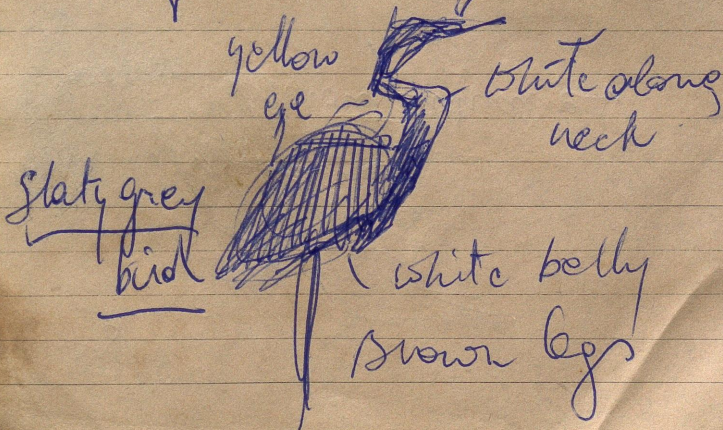 yellow
eye
white along
neck
slaty grey
bird
white belly
brown legs